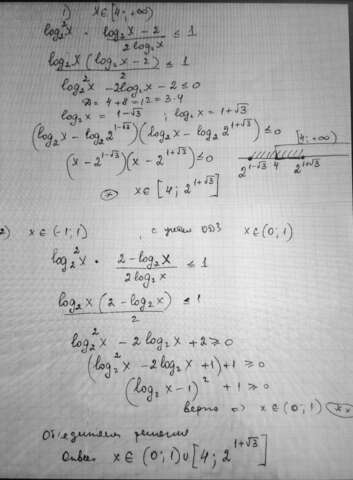 1) x∈[4; +∞)
log₂²x · (log₂x − 2)/(2log₂x) ≤ 1
log₂x (log₂x − 2)/2 ≤ 1
log₂²x − 2log₂x − 2 ≤ 0
D = 4 + 8 = 12 = 3·4
log₂x = 1−√3 ; log₂x = 1+√3
(log₂x − log₂2^(1−√3))(log₂x − log₂2^(1+√3)) ≤ 0
(x − 2^(1−√3))(x − 2^(1+√3)) ≤ 0
[4; +∞)
2^(1−√3) 4 2^(1+√3)
* x∈[4; 2^(1+√3)]
2) x∈(−1; 1), с учетом ОДЗ x∈(0; 1)
log₂²x · (2 − log₂x)/(2log₂x) ≤ 1
log₂x (2 − log₂x)/2 ≤ 1
log₂²x − 2log₂x + 2 ≥ 0
(log₂²x − 2log₂x + 1) + 1 ≥ 0
(log₂x − 1)² + 1 ≥ 0
верно => x∈(0; 1) **
Объединяем решения
Ответ x∈(0; 1)∪[4; 2^(1+√3)]